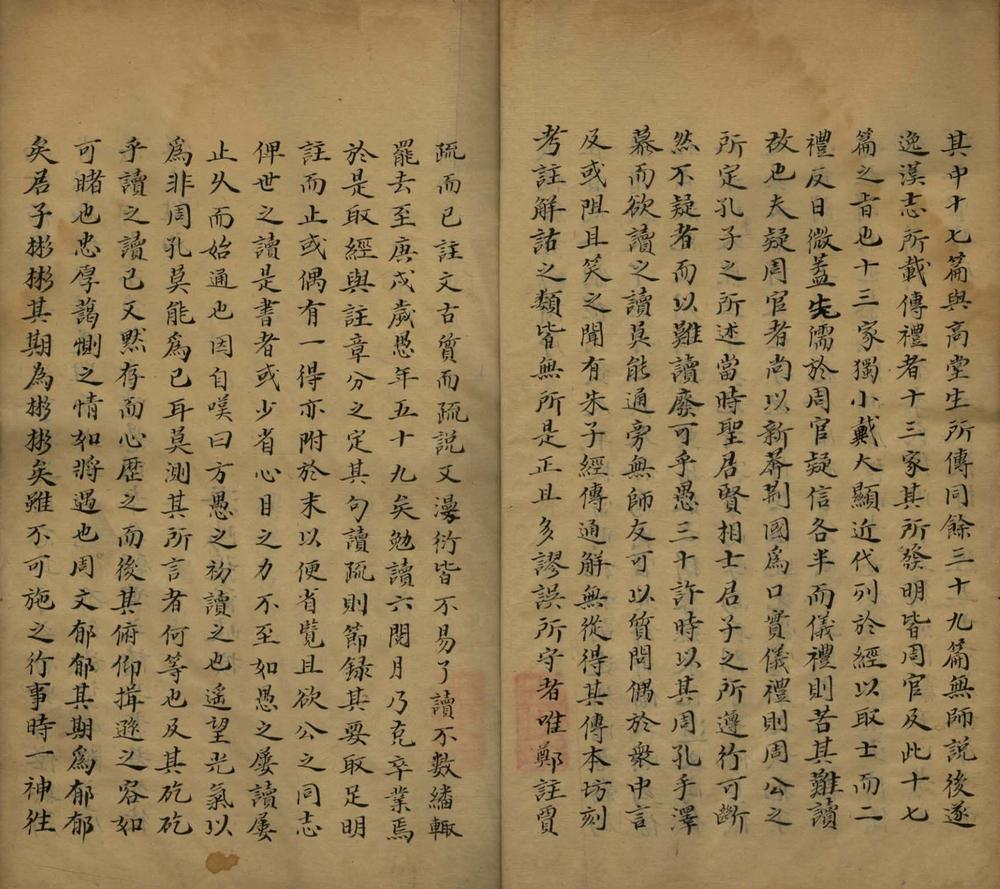 其中十七篇與高堂生所傳同餘三十九篇無師說後遂
逸漢志所載傳禮者十三家其所發明皆周官及此十七
篇之旨也十三家獨小戴大顯近代列於經以取士而二
禮反日微蓋先儒於周官疑信各半而儀禮則苦其難讀
故也夫疑周官者尚以新莽荆國爲口實儀禮則周公之
所定孔子之所述當時聖君賢相士君子之所遵行可斷
然不疑者而以難讀廢可乎愚三十許時以其周孔手澤
慕而欲讀之讀莫能通旁無師友可以質問偶於衆中言
及或阻且笑之聞有朱子經傳通解無從得其傳本坊刻
考註解詁之類皆無所是正且多謬誤所守者唯鄭註賈
疏而已註文古質而疏說又漫衍皆不易了讀不數繙輙
罷去至庚戌歲愚年五十九矣勉讀六閱月乃克卒業焉
於是取經與註章分之定其句讀疏則節録其要取足明
註而止或偶有一得亦附於末以便省覽且欲公之同志
俾世之讀是書者或少省心目之力不至如愚之屢讀屢
止乆而始通也因自嘆曰方愚之初讀之也遙望光氣以
爲非周孔莫能爲已耳莫測其所言者何等也及其矻矻
乎讀之讀已又默存而心歴之而後其俯仰揖遜之容如
可睹也忠厚藹惻之情如將遇也周文郁郁其期爲郁郁
矣君子彬彬其期為彬彬矣雖不可施之行事時一神往